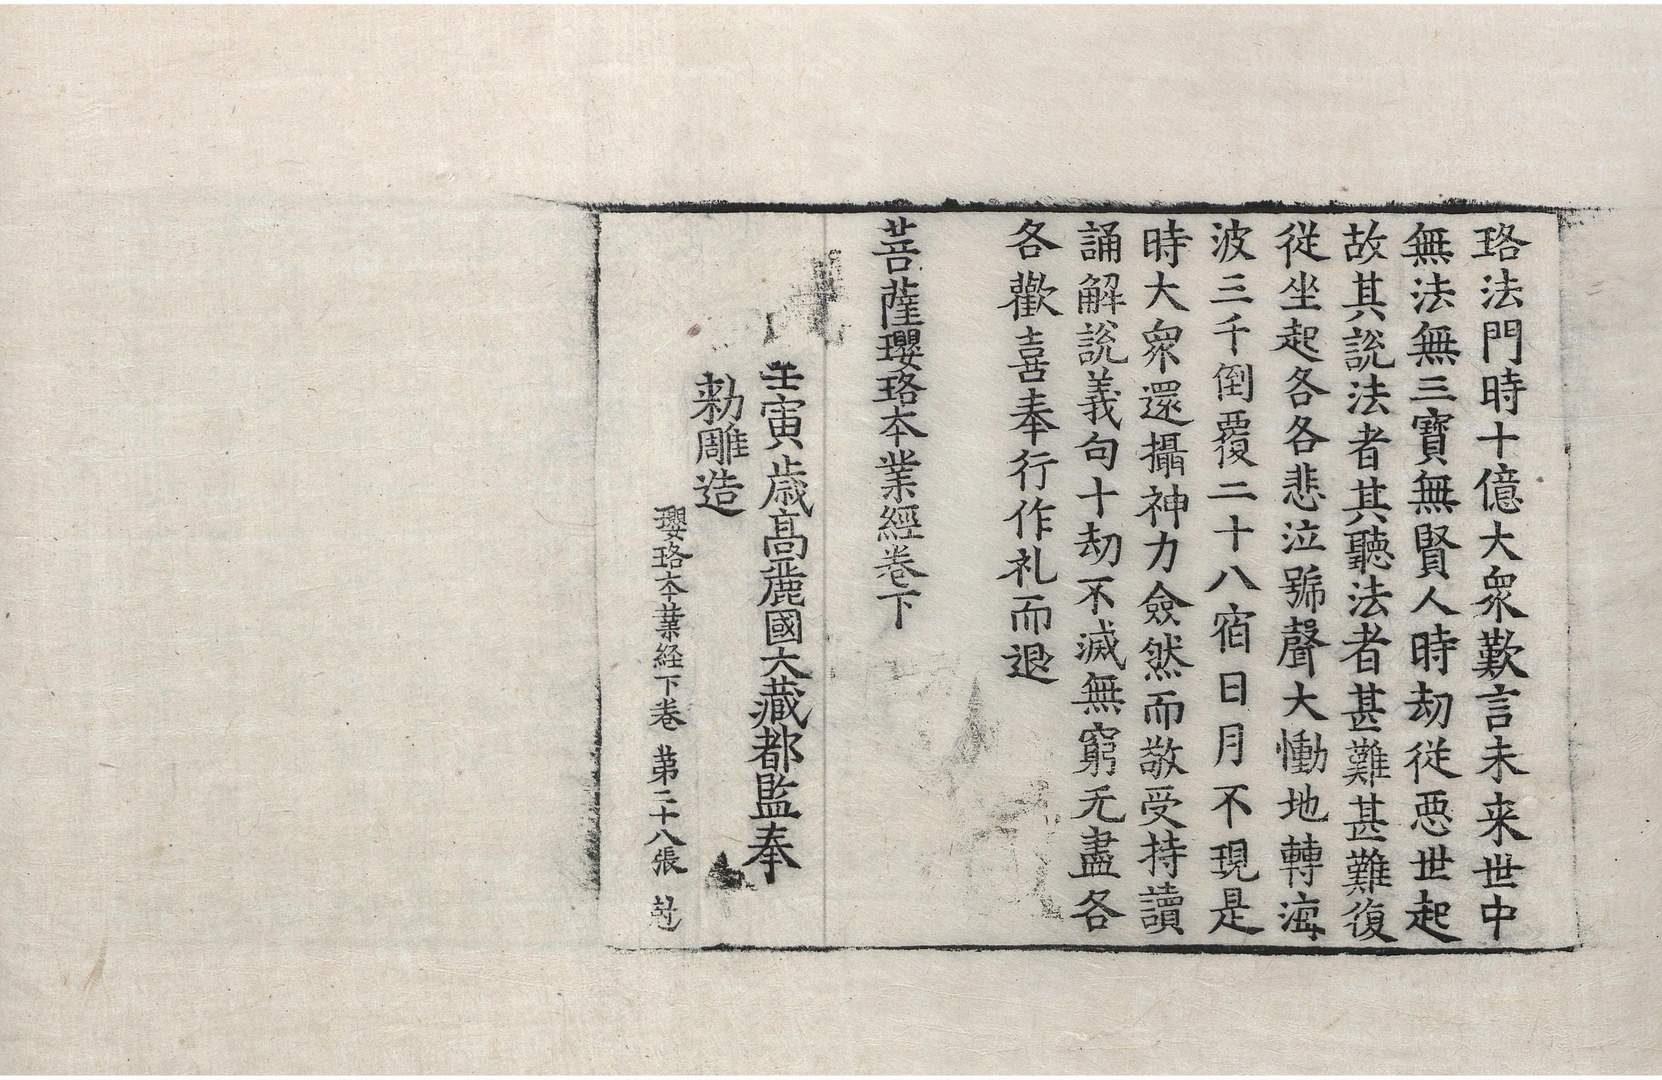 珞法門時十億大衆歎言未来世中
無法無三寶無賢人時劫從惡世起
故其說法者其聽法者甚難甚難復
從坐起各各悲泣號聲大慟地轉海
波三千倒覆二十八宿日月不現是
時大衆還攝神力僉然而敬受持讀
誦解說義句十劫不滅無窮无盡各
各歡喜奉行作礼而退
菩薩瓔珞本業經卷下
壬寅歲高麗國大藏都監奉
勑雕造
瓔珞本業経下卷 第二十八張